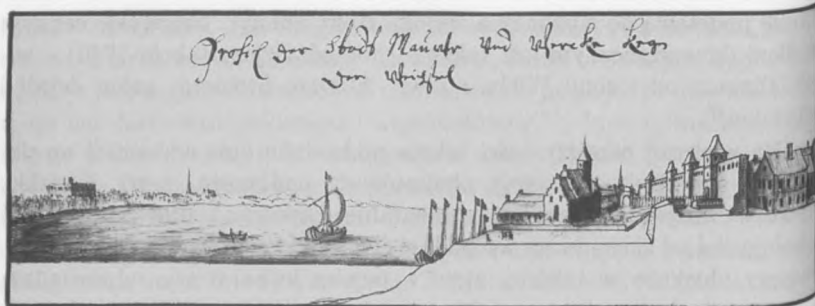 Profil der Stads Mauwer und Wercke Legs
der Weichsel